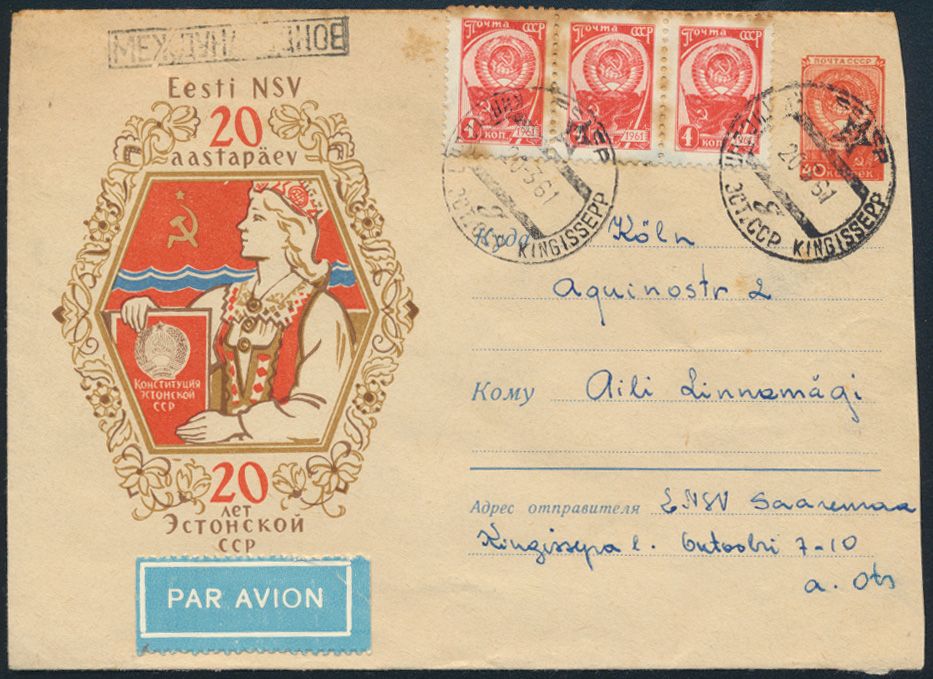 МЕЖДУНАРОДНОЕ
Eesti NSV
20
aastapäev
КОНСТИТУЦИЯ
ЭСТОНСКОЙ
ССР
20
ЛЕТ
ЭСТОНСКОЙ
ССР
PAR AVION
Почта
СССР
4
КОП.
1961
Почта
СССР
1961
Почта
СССР
4
КОП.
1961
ПОЧТА СССР
40 КОПЕЕК
20-3 61
ЭСТ. ССР KINGISSEPP
20 61
ЭСТ. ССР KINGISSEPP
Куда Köln
Aquinostr 2
Кому Aili Linnamägi
Адрес отправителя ENSV Saaremaa
Kingissepa l. 7-10
A. Ots